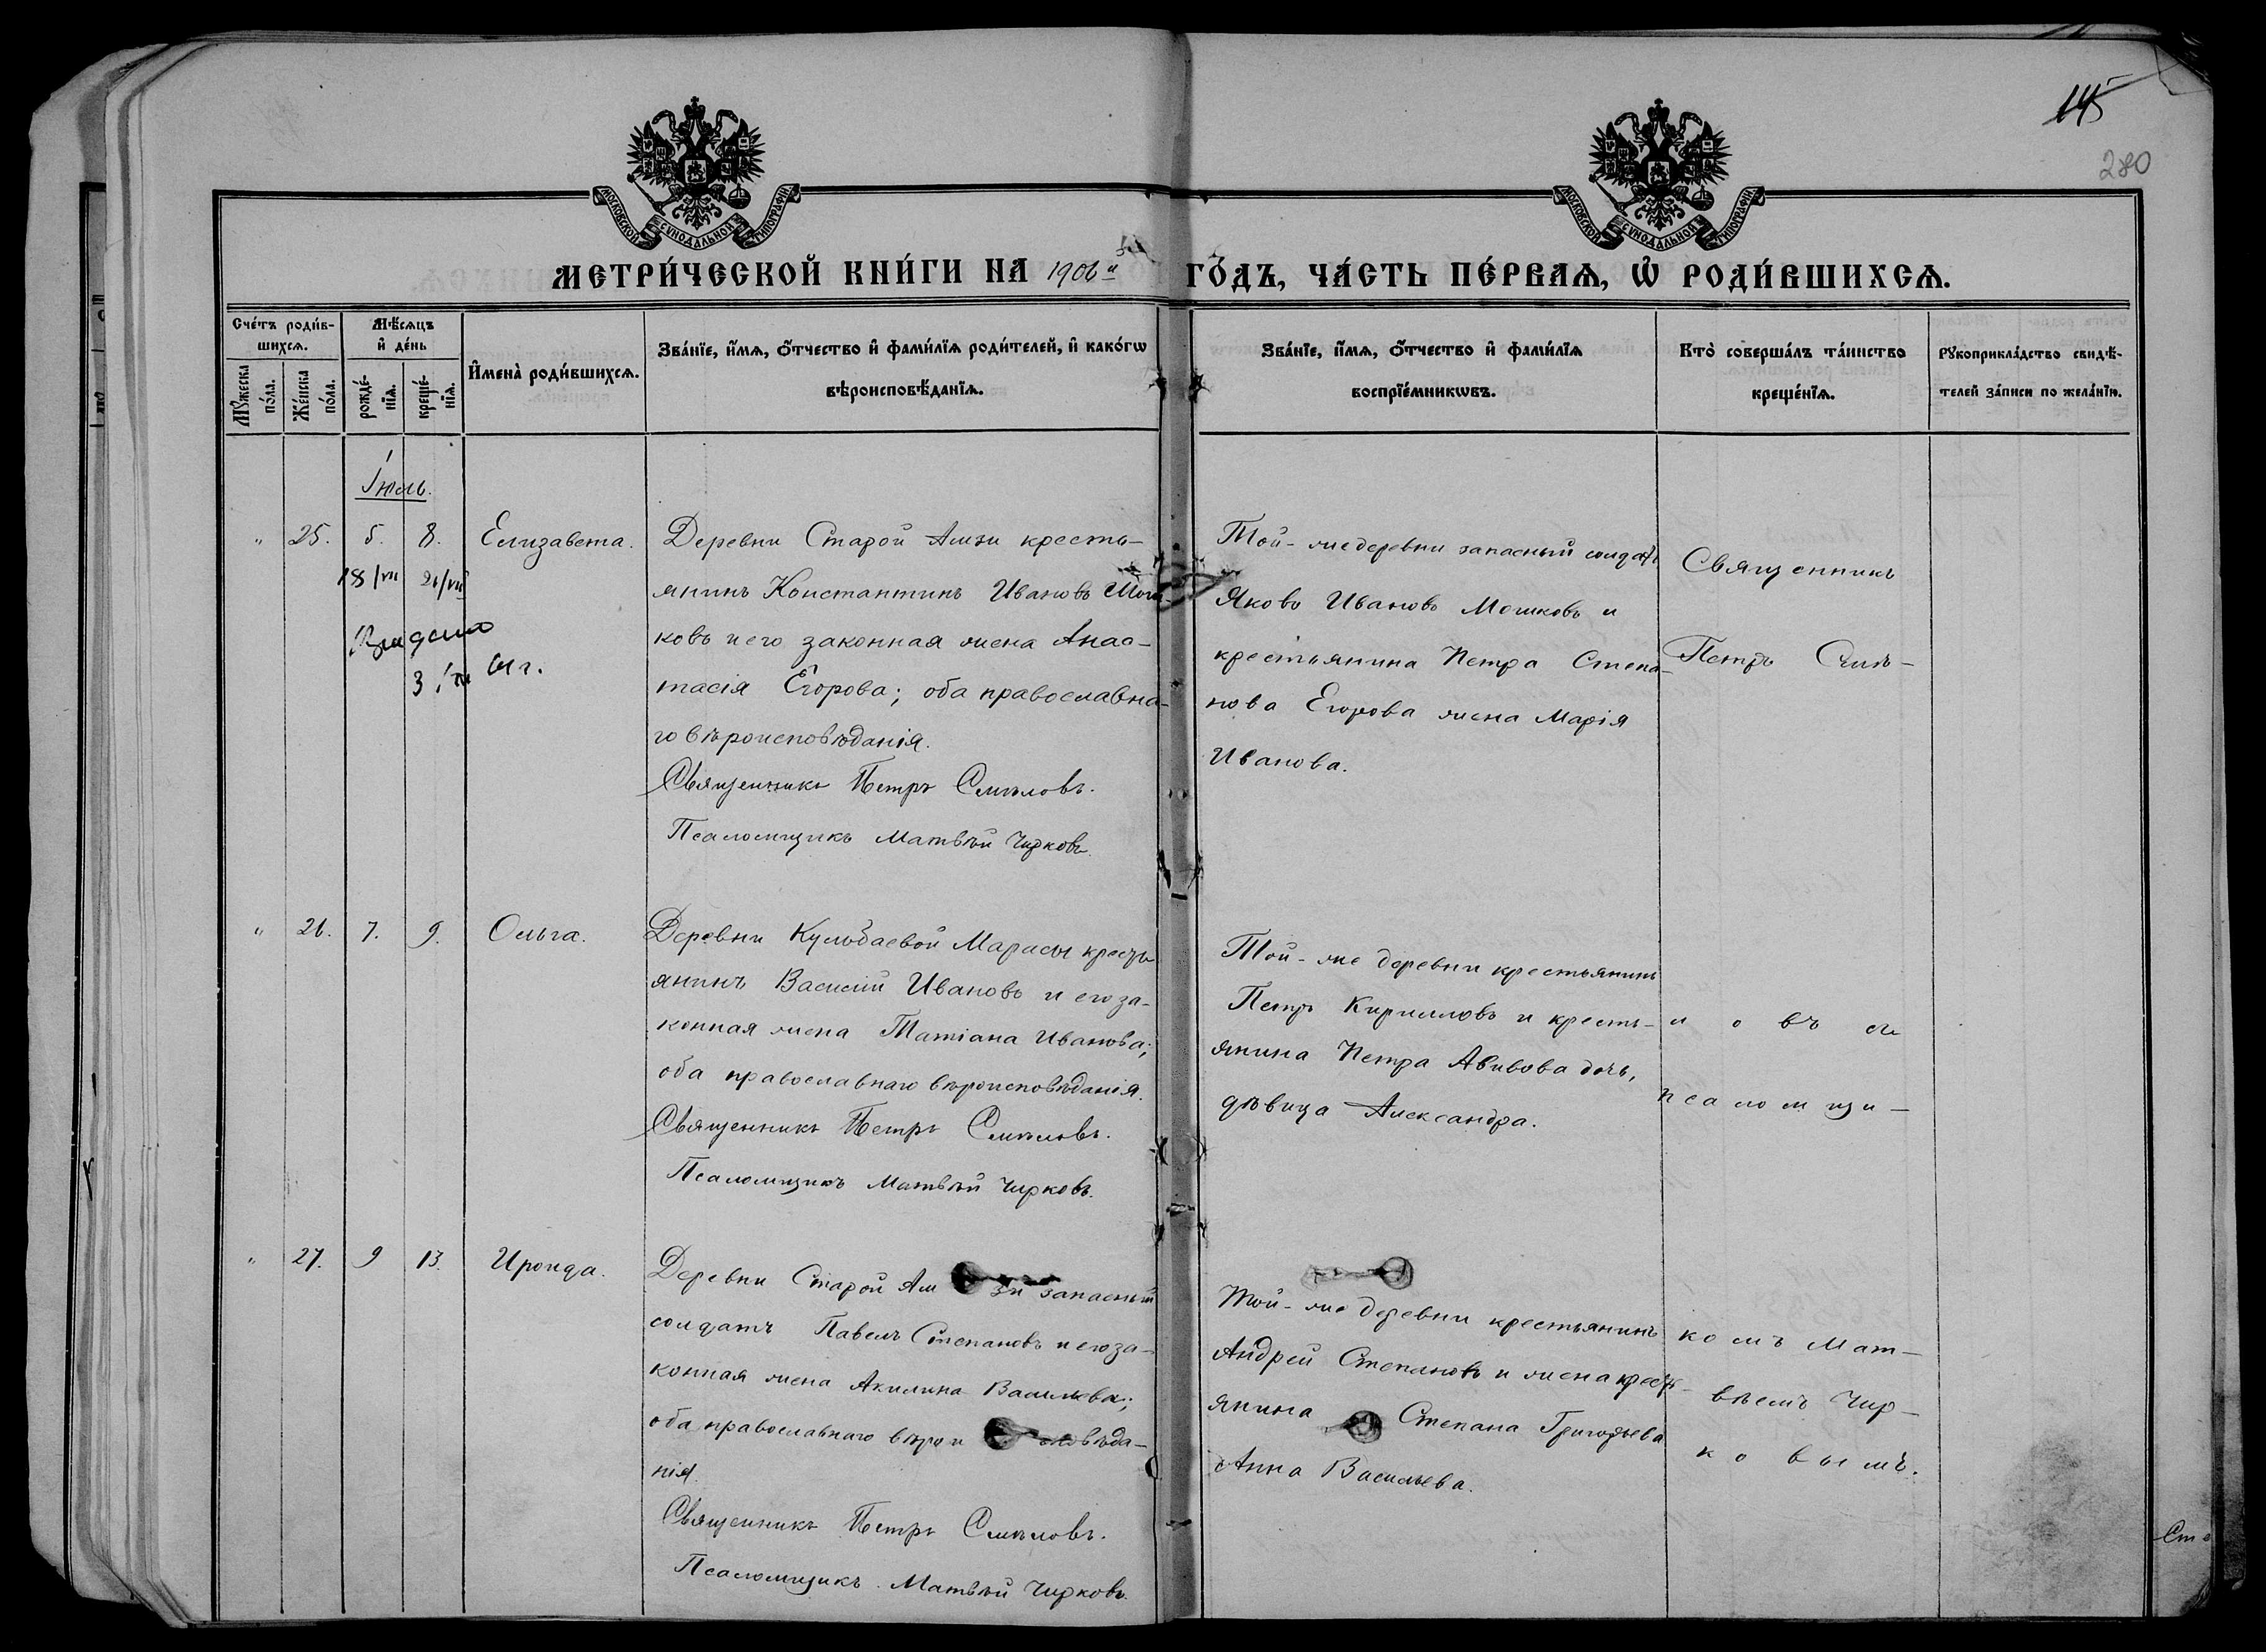 145
280
МОСКОВСКОЙ СѴНОДАЛЬНОЙ ТИПОГРАФІИ
МОСКОВСКОЙ СѴНОДАЛЬНОЙ ТИПОГРАФІИ
МЕТРИ́ЧЕСКОЙ КНИ́ГИ НА 1906 й
ГО́ДЪ, ЧА́СТЬ ПЕ́РВАѦ, Ѡ҆ РОДИ́ВШИХСѦ.
Сче́тъ роди́в-
шихсѧ.
Мꙋ́жеска по́ла.
Же́нска по́ла.
Мѣ́сѧцъ
и҆ де́нь
рожде́-
нїѧ.
креще́-
нїѧ.
И҆мена̀ роди́вшихсѧ.
Зва́нїе, и҆́мѧ, ѻ҆́тчество и҆ фами́лїѧ роди́телей, и҆ како́гѡ
вѣроисповѣ́данїѧ.
Зва́нїе, и҆́мѧ, ѻ҆́тчество и҆ фами́лїѧ
воспрїе́мникѡвъ.
Кто̀ соверша́лъ та́инство
креще́нїѧ.
Рꙋкоприкла́дство свидѣ́-
телей за́писи по жела́нїю.
Іюль.
" 25. 5. 8. Елизавета.
18/VII 21/VII
Выдано
Деревни Старой Амзи кресть-
янинъ Константинъ Ивановъ Мош-
ковъ и его законная жена Анас-
тасія Егорова; оба православна-
го вѣроисповѣданія.
Священникъ Петръ Смѣловъ.
Псаломщикъ Матвѣй Чирковъ.
Той-же деревни запасный солдатъ
Яковъ Ивановъ Мошковъ и
крестьянина Петра Степа-
нова Егорова жена Марія
Иванова.
Священникъ
Петръ Смѣ-
" 26. 7. 9. Ольга.
Деревни Кульбаевой Марасы кресть-
янинъ Василій Ивановъ и его за-
конная жена Татіана Иванова;
оба православнаго вѣроисповѣданія.
Священникъ Петръ Смѣловъ.
Псаломщикъ Матвѣй Чирковъ.
Той-же деревни крестьянинъ
Петръ Кирилловъ и кресть-
янина Петра Авивова дочь,
дѣвица Александра.
ловъ съ
псаломщи-
" 27. 9 13. Ироида.
Деревни Старой Амзи запасный
солдатъ Павелъ Степановъ и его за-
конная жена Акилина Васильева;
оба православнаго вѣроисповѣда-
нія.
Священникъ Петръ Смѣловъ.
Псаломщикъ Матвѣй Чирковъ.
Той-же деревни крестьянинъ
Андрей Степановъ и жена кресть-
янина Степана Григорьева
Анна Васильева.
комъ Мат-
вѣемъ Чир-
ковымъ.